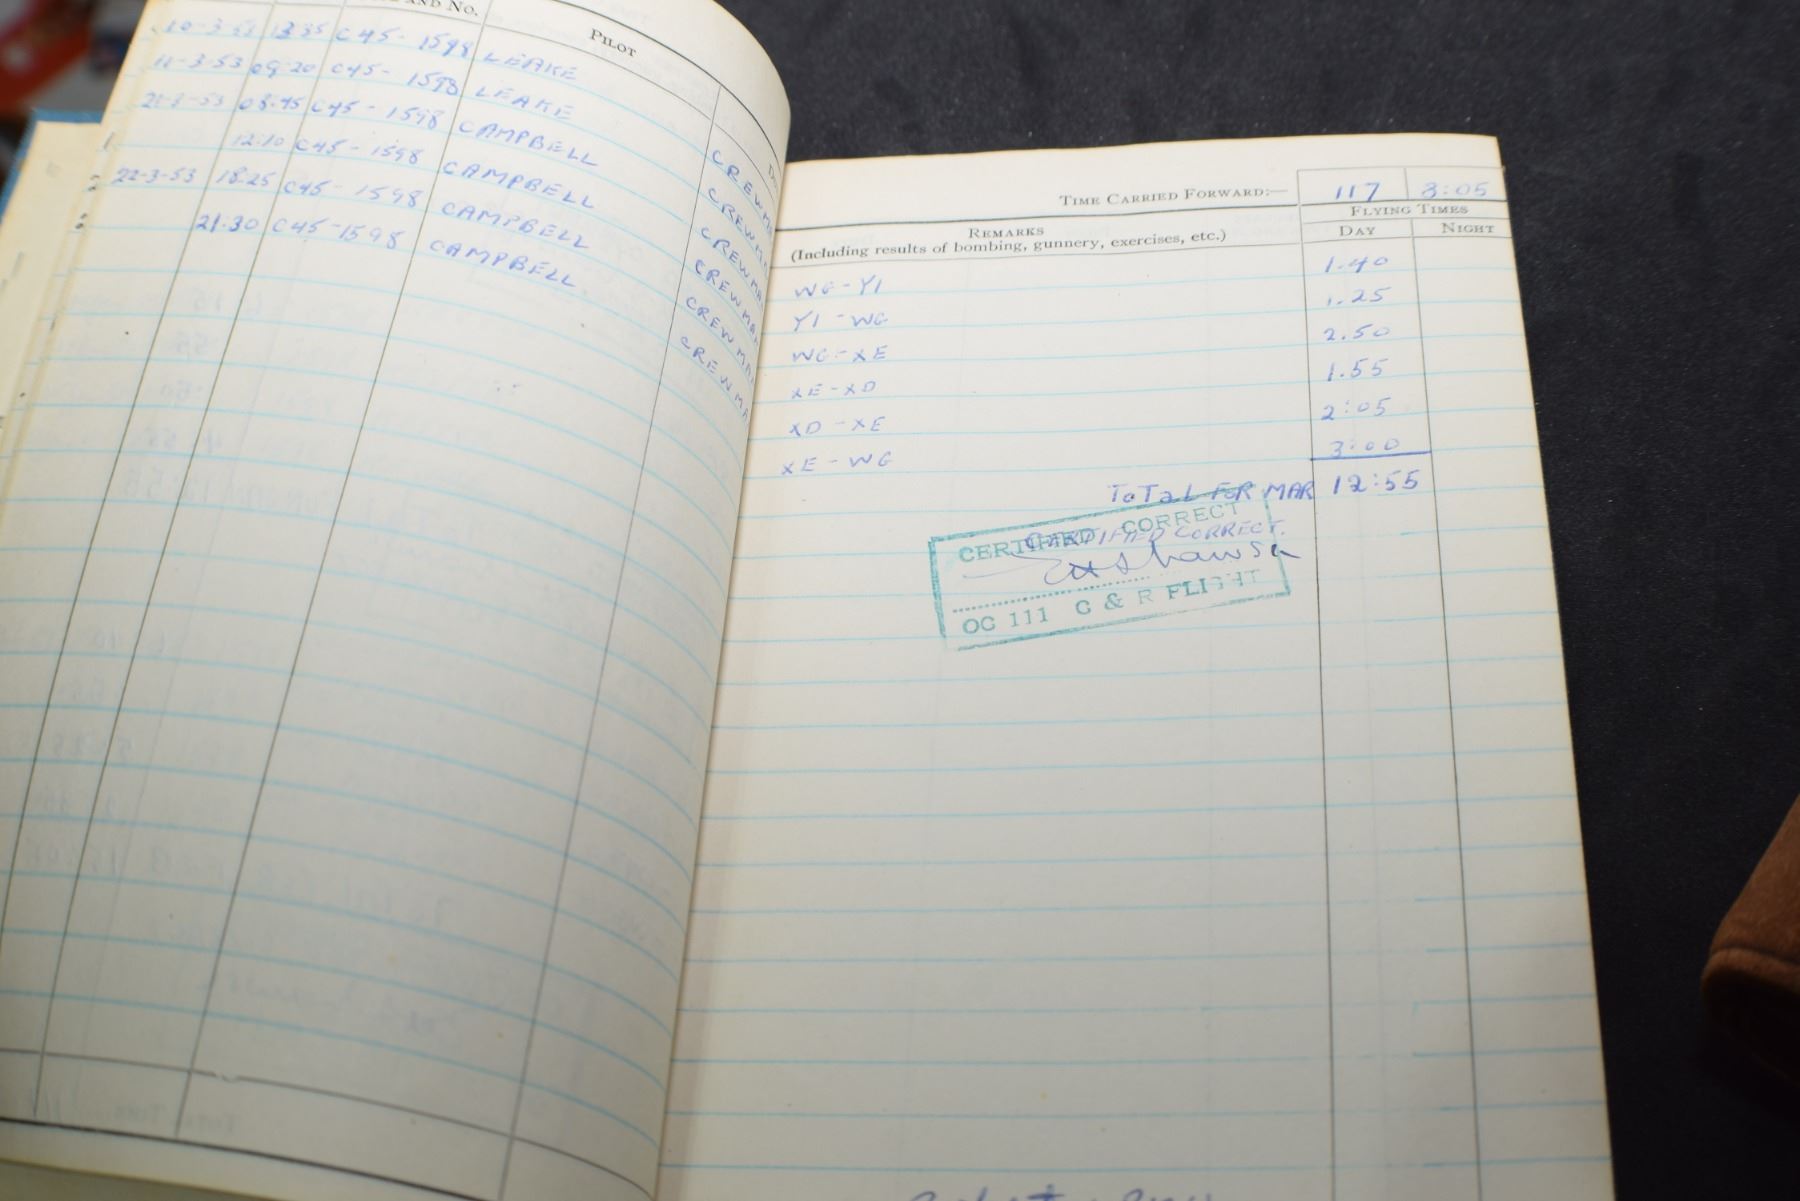 AND No.
PILOT
10-3-53 13:35 C45-1598 LEAKE CREWMA
11-3-53 09:20 C45-1598 LEAKE CREWMA
21-3-53 08:45 C45-1598 CAMPBELL CREWMA
12:10 C45-1598 CAMPBELL CREWMA
22-3-53 18:25 C45-1598 CAMPBELL CREWMA
21:30 C45-1598 CAMPBELL CREWMA
TIME CARRIED FORWARD:— 117 3:05
FLYING TIMES
REMARKS
(Including results of bombing, gunnery, exercises, etc.)
DAY NIGHT
WG-YI 1.40
YI-WG 1.25
WG-XE 2.50
XE-XD 1.55
XD-XE 2:05
XE-WG 3:00
TOTAL FOR MAR 12:55
CERTIFIED CORRECT
CERTIFIED CORRECT.
OC 111 C & R FLIGHT